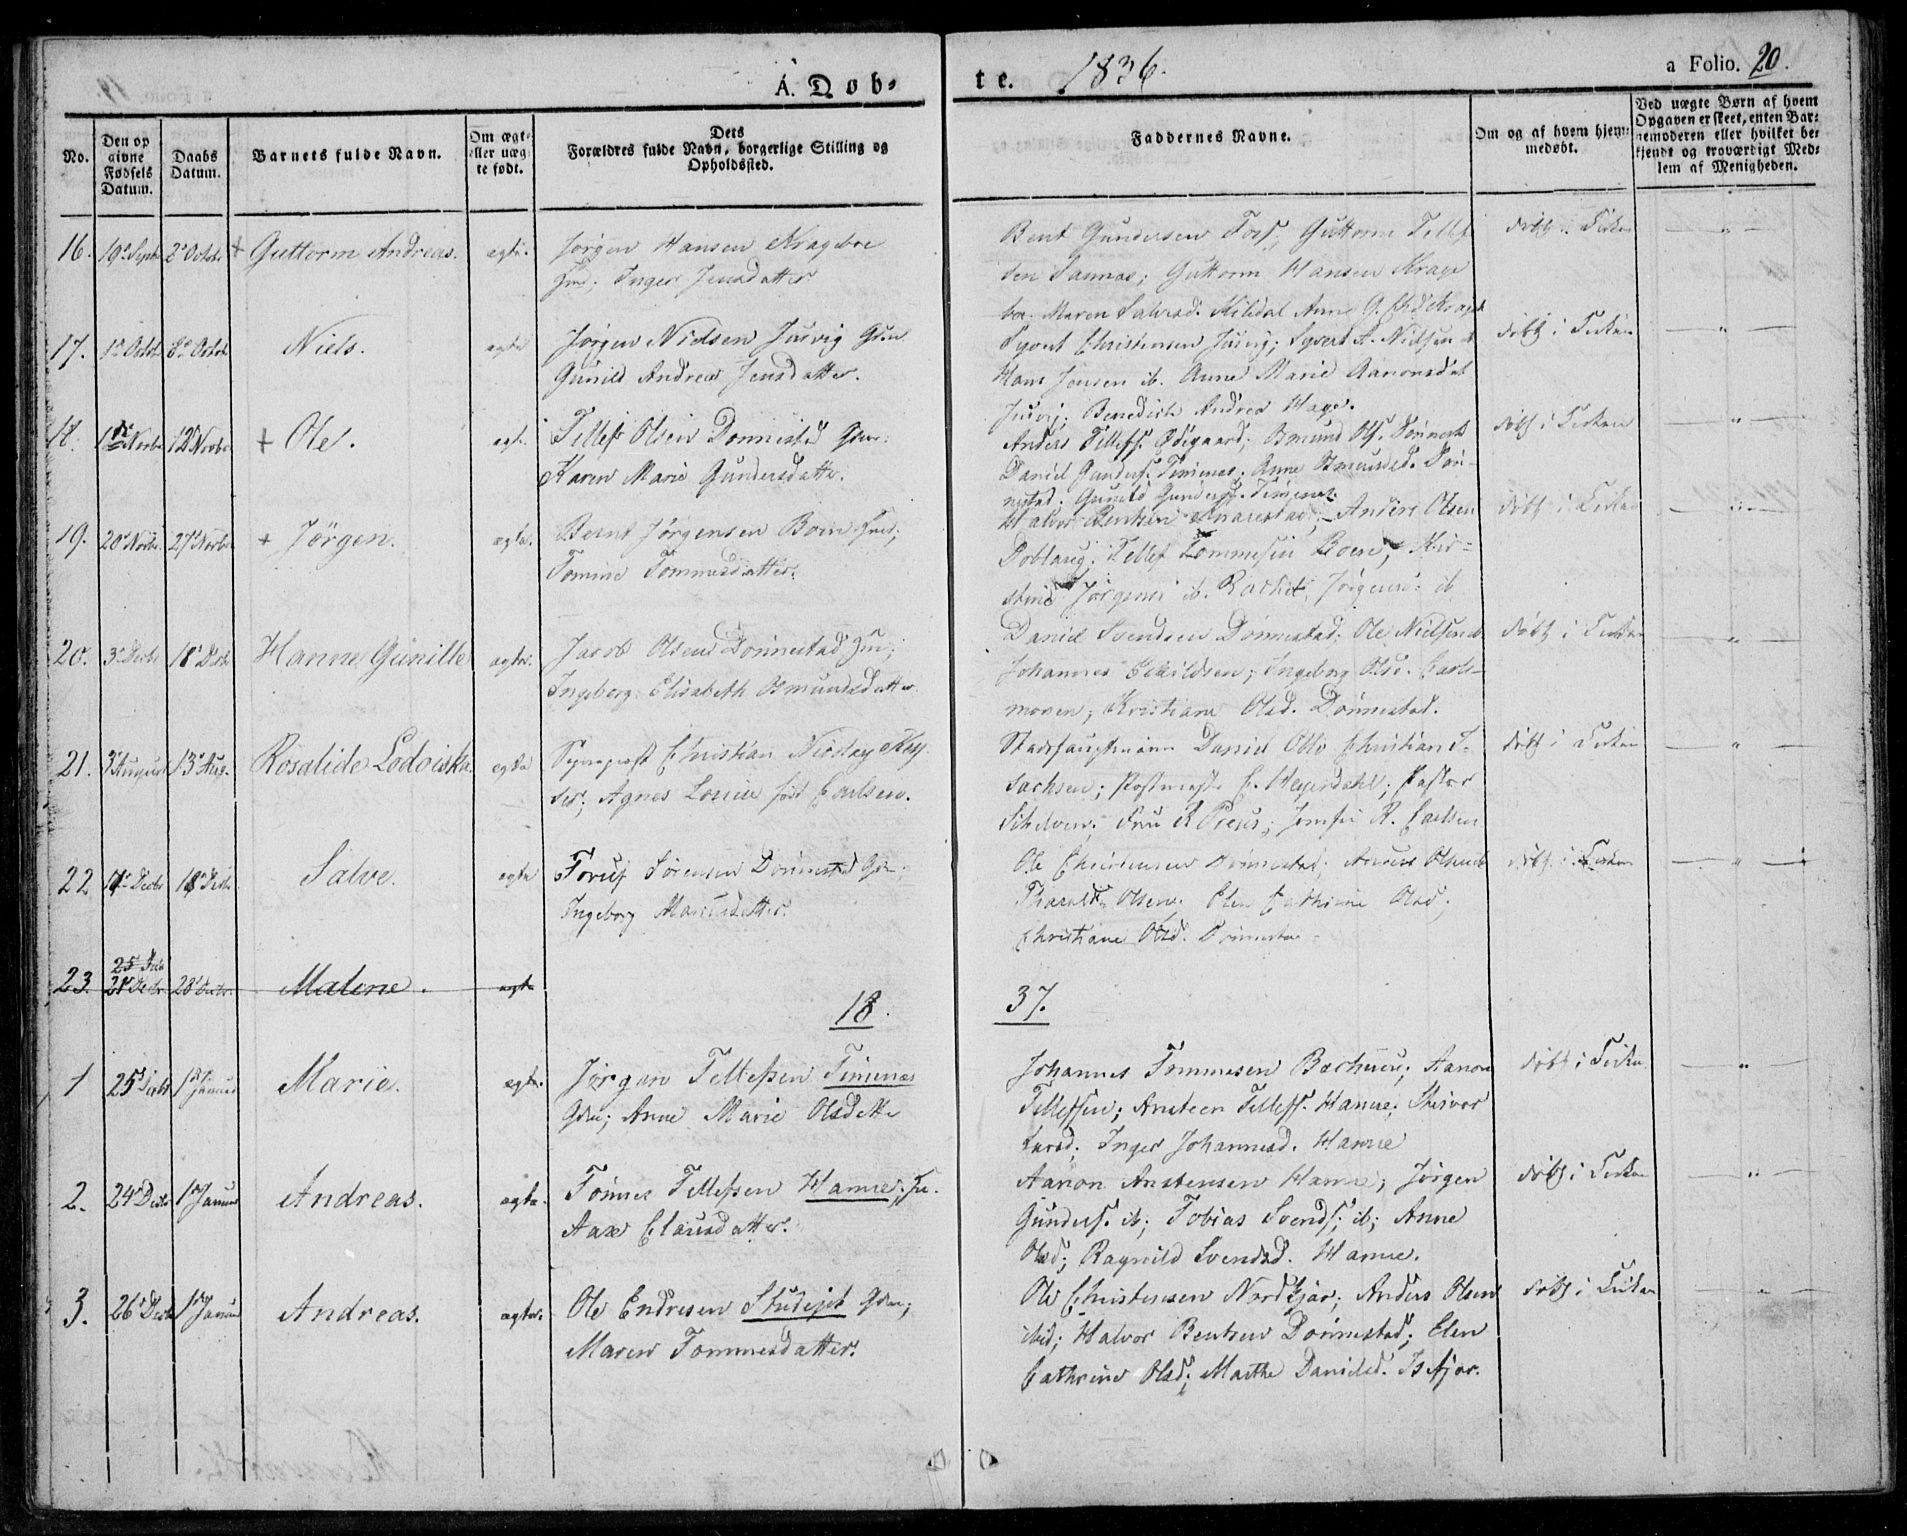 A. Døb-
te. 1836.
a Folio. 20.
No.
Den opgivne Fødsels Datum.
Daabs Datum.
Barnets fulde Navn.
Om ægte eller uægte født.
Dets Forældres fulde Navn, borgerlige Stilling og Opholdssted.
Faddernes Navne.
Om og af hvem hjemmedøbt.
Ved uægte Børn af hvem Opgaven er skeet, enten Barnemoderen eller hvilket bekjendt og troværdigt Medlem af Menigheden.
16. 19de Septbr 2de Octobr + Guttorm Andreas. ægte. Jørgen Hansen Kragebo
Inger Jensdatter
Bent Gundersen Foss; Guttorm Tellef
sen Saanæs; Guttorm Hansen Krage
bo. Maren
døbt i Kirken
17. 1de Octbr 8de Octob Niels. ægte Jørgen Nielsen Jusvig Gdm
Gunild Andrea Jensdatter.
Syvert Christensen Jusvig; Syvert A. Nielsen
Hans Jensen ib. Anne Marie Aanonsdat
Jusvig; Benedicte Andrea Hage.
døbt i Kirken
18. Novbr 12 Novbr + Ole. ægte. Tellef Olsen Dønnestad Gdm:
Karen Marie Gundersdatter.
Anders Tellefs. Ødegaard; Osmund Ols. Dønnest
Daniel Gunders. Timenes. Anne Osmundsd. Døn-
nestad. Gunild Gundersd. Timenes.
døbt i Kirken
19. 20de Novbr. 27de Novbr + Jørgen. ægte. Bernt Jørgensen Boen Ind;
Tomine Tommesdatter.
Halvor Bentsen Anders Olsen
Doblaug; Tellef Tommesen Boen; Kir-
stine Jørgens ib. Rachel Jørgens: ib
døbt i Kirken
20. 3de Decbr 18de Decbr Hanne Gunille ægte. Jacob Olsen Dønnestad
Ingeborg Elisabeth Osmundsdatter.
Daniel Svendsen Dønnestad; Ole Nielsen ib
Johannes Eskildsen; Ingeborg Olsd. Carls-
moven; Kristiane Olsd. Dønnestad.
døbt i Kirken
21. 3de August 13de Aug. Rosalide Lodoiska. ægte Sognepræst Christian Nicolay Key
ser; Agnes Louise født Carlsen.
Stadshauptmann Daniel Otto Christian I-
sachsen; Postmester C. Heyerdahl; Pastor
Fru R Preus; Jomfru R. Carlsen
døbt i Kirken
22 Decbr 18de Decbr Salve. ægte Toruf Sørensen Dønnestad Gdm.
Ingeborg
Ole Christensen Dønnestad; Anders Olsen ib
Olsen; Elen Cathrine Olsd;
Christiane Olsd. Dønnestad
døbt i Kirken
23. 25 Decbr 21 Decbr. 28de Decbr. Malene. ægte
18 37.
1 25de Decbr 1ste Januar Marie. ægte. Jørgen Tellefsen Timenes
Gdm; Anne Marie Olsdatter
Johannes Tommesen Aanon
Tellefsen; Ansteen Tellefs. Hamre;
Inger Johannesd. Hamre
døbt i Kirken
2. 24de Decbr 1ste Januar Andreas. ægte. Tønnes Tellefsen Hamre; In.
Aase Clausdatter.
Aanon Anstensen Hamre; Jørgen
Gunders. ib; Tobias Svends. ib; Anne
Olsd; Ragnild Svendsd. Hamre.
døbt i Kirken
3. 26de Decbr 1ste Januar Andreas. ægte. Ole Endresen Studejet Gdm;
Maren Tommesdatter.
Ole Christensen Nordkjær; Anders Olsen
ibid; Halvor Bentsen Dønnestad; Elen
Cathrine Olsd; Marthe Danielsd. Isefjær.
døbt i Kirken